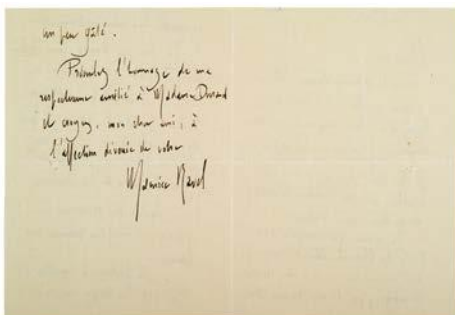 un peu gâté.
Présentez l'hommage de ma
respectueuse amitié à Madame Durand
et croyez, mon cher ami, à
l'affection dévouée de votre
Maurice Ravel